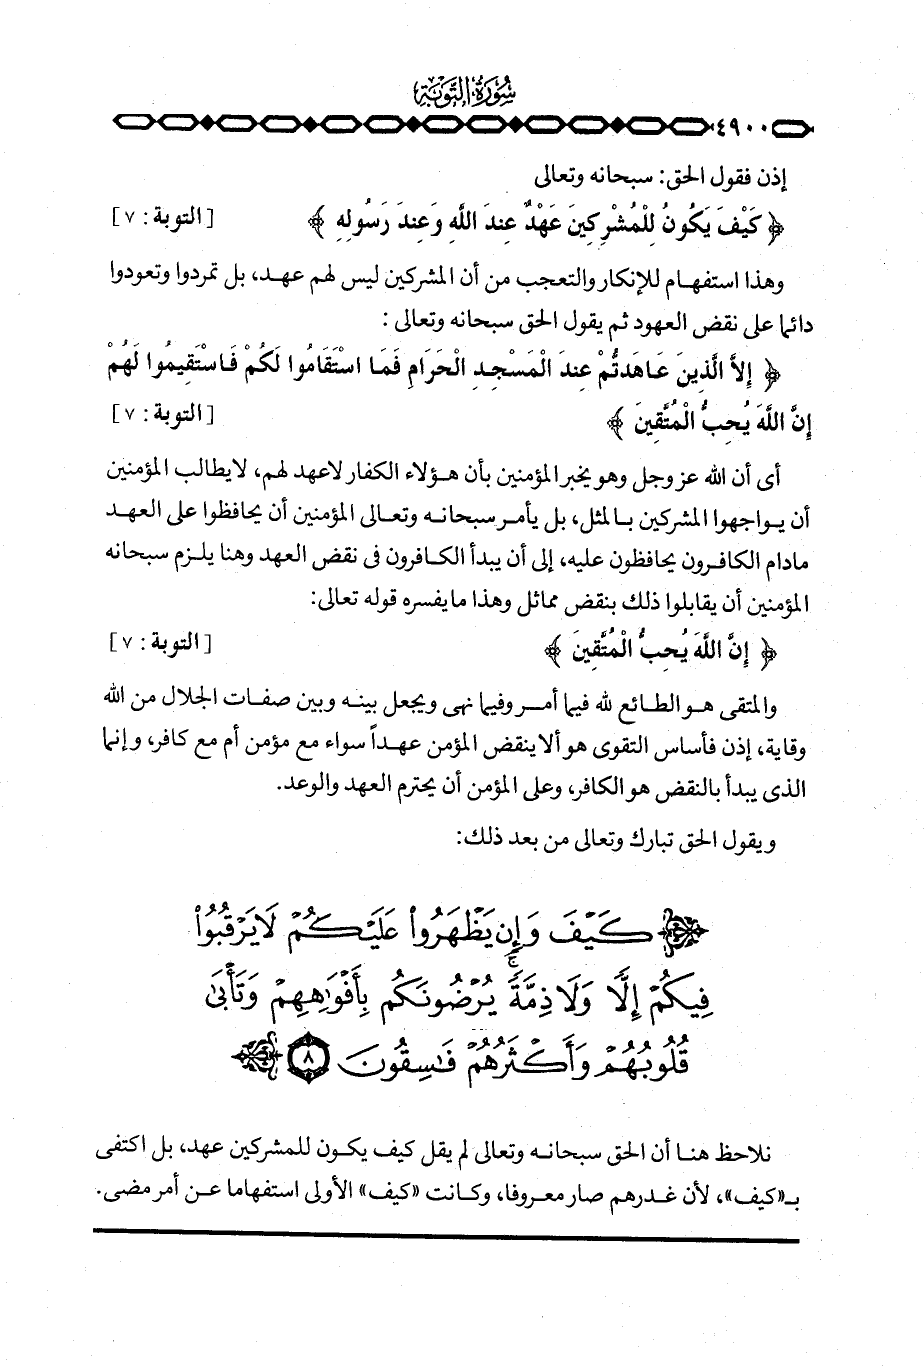 سُورَةُ التَّوْبَةِ
٤٩٠٠
إذن فقول الحق: سبحانه وتعالى
﴿ كَيْفَ يَكُونُ لِلْمُشْرِكِينَ عَهْدٌ عِندَ اللَّهِ وَعِندَ رَسُولِهِ ﴾ [التوبة: ٧]
وهذا استفهام للإنكار والتعجب من أن المشركين ليس لهم عهد، بل تمردوا وتعودوا
دائما على نقض العهود ثم يقول الحق سبحانه وتعالى :
﴿ إِلاَّ الَّذِينَ عَاهَدتُّمْ عِندَ الْمَسْجِدِ الْحَرَامِ فَمَا اسْتَقَامُوا لَكُمْ فَاسْتَقِيمُوا لَهُمْ
إِنَّ اللَّهَ يُحِبُّ الْمُتَّقِينَ ﴾ [التوبة: ٧]
أى أن الله عز وجل وهو يخبر المؤمنين بأن هؤلاء الكفار لاعهد لهم، لايطالب المؤمنين
أن يواجهوا المشركين بالمثل، بل يأمر سبحانه وتعالى المؤمنين أن يحافظوا على العهد
مادام الكافرون يحافظون عليه، إلى أن يبدأ الكافرون فى نقض العهد وهنا يلزم سبحانه
المؤمنين أن يقابلوا ذلك بنقض مماثل وهذا مايفسره قوله تعالى:
﴿ إِنَّ اللَّهَ يُحِبُّ الْمُتَّقِينَ ﴾ [التوبة: ٧]
والمتقى هو الطائع لله فيما أمر وفيما نهى ويجعل بينه وبين صفات الجلال من الله
وقاية، إذن فأساس التقوى هو ألا ينقض المؤمن عهداً سواء مع مؤمن أم مع كافر، وإنما
الذى يبدأ بالنقض هو الكافر، وعلى المؤمن أن يحترم العهد والوعد.
ويقول الحق تبارك وتعالى من بعد ذلك:
كَيْفَ وَإِن يَظْهَرُوا عَلَيْكُمْ لَا يَرْقُبُوا
فِيكُمْ إِلًّا وَلَا ذِمَّةً ۚ يُرْضُونَكُم بِأَفْوَاهِهِمْ وَتَأْبَىٰ
قُلُوبُهُمْ وَأَكْثَرُهُمْ فَاسِقُونَ ٨
نلاحظ هنا أن الحق سبحانه وتعالى لم يقل كيف يكون للمشركين عهد، بل اكتفى
بـ«كيف»، لأن غدرهم صار معروفا، وكانت «كيف» الأولى استفهاما عن أمر مضى.